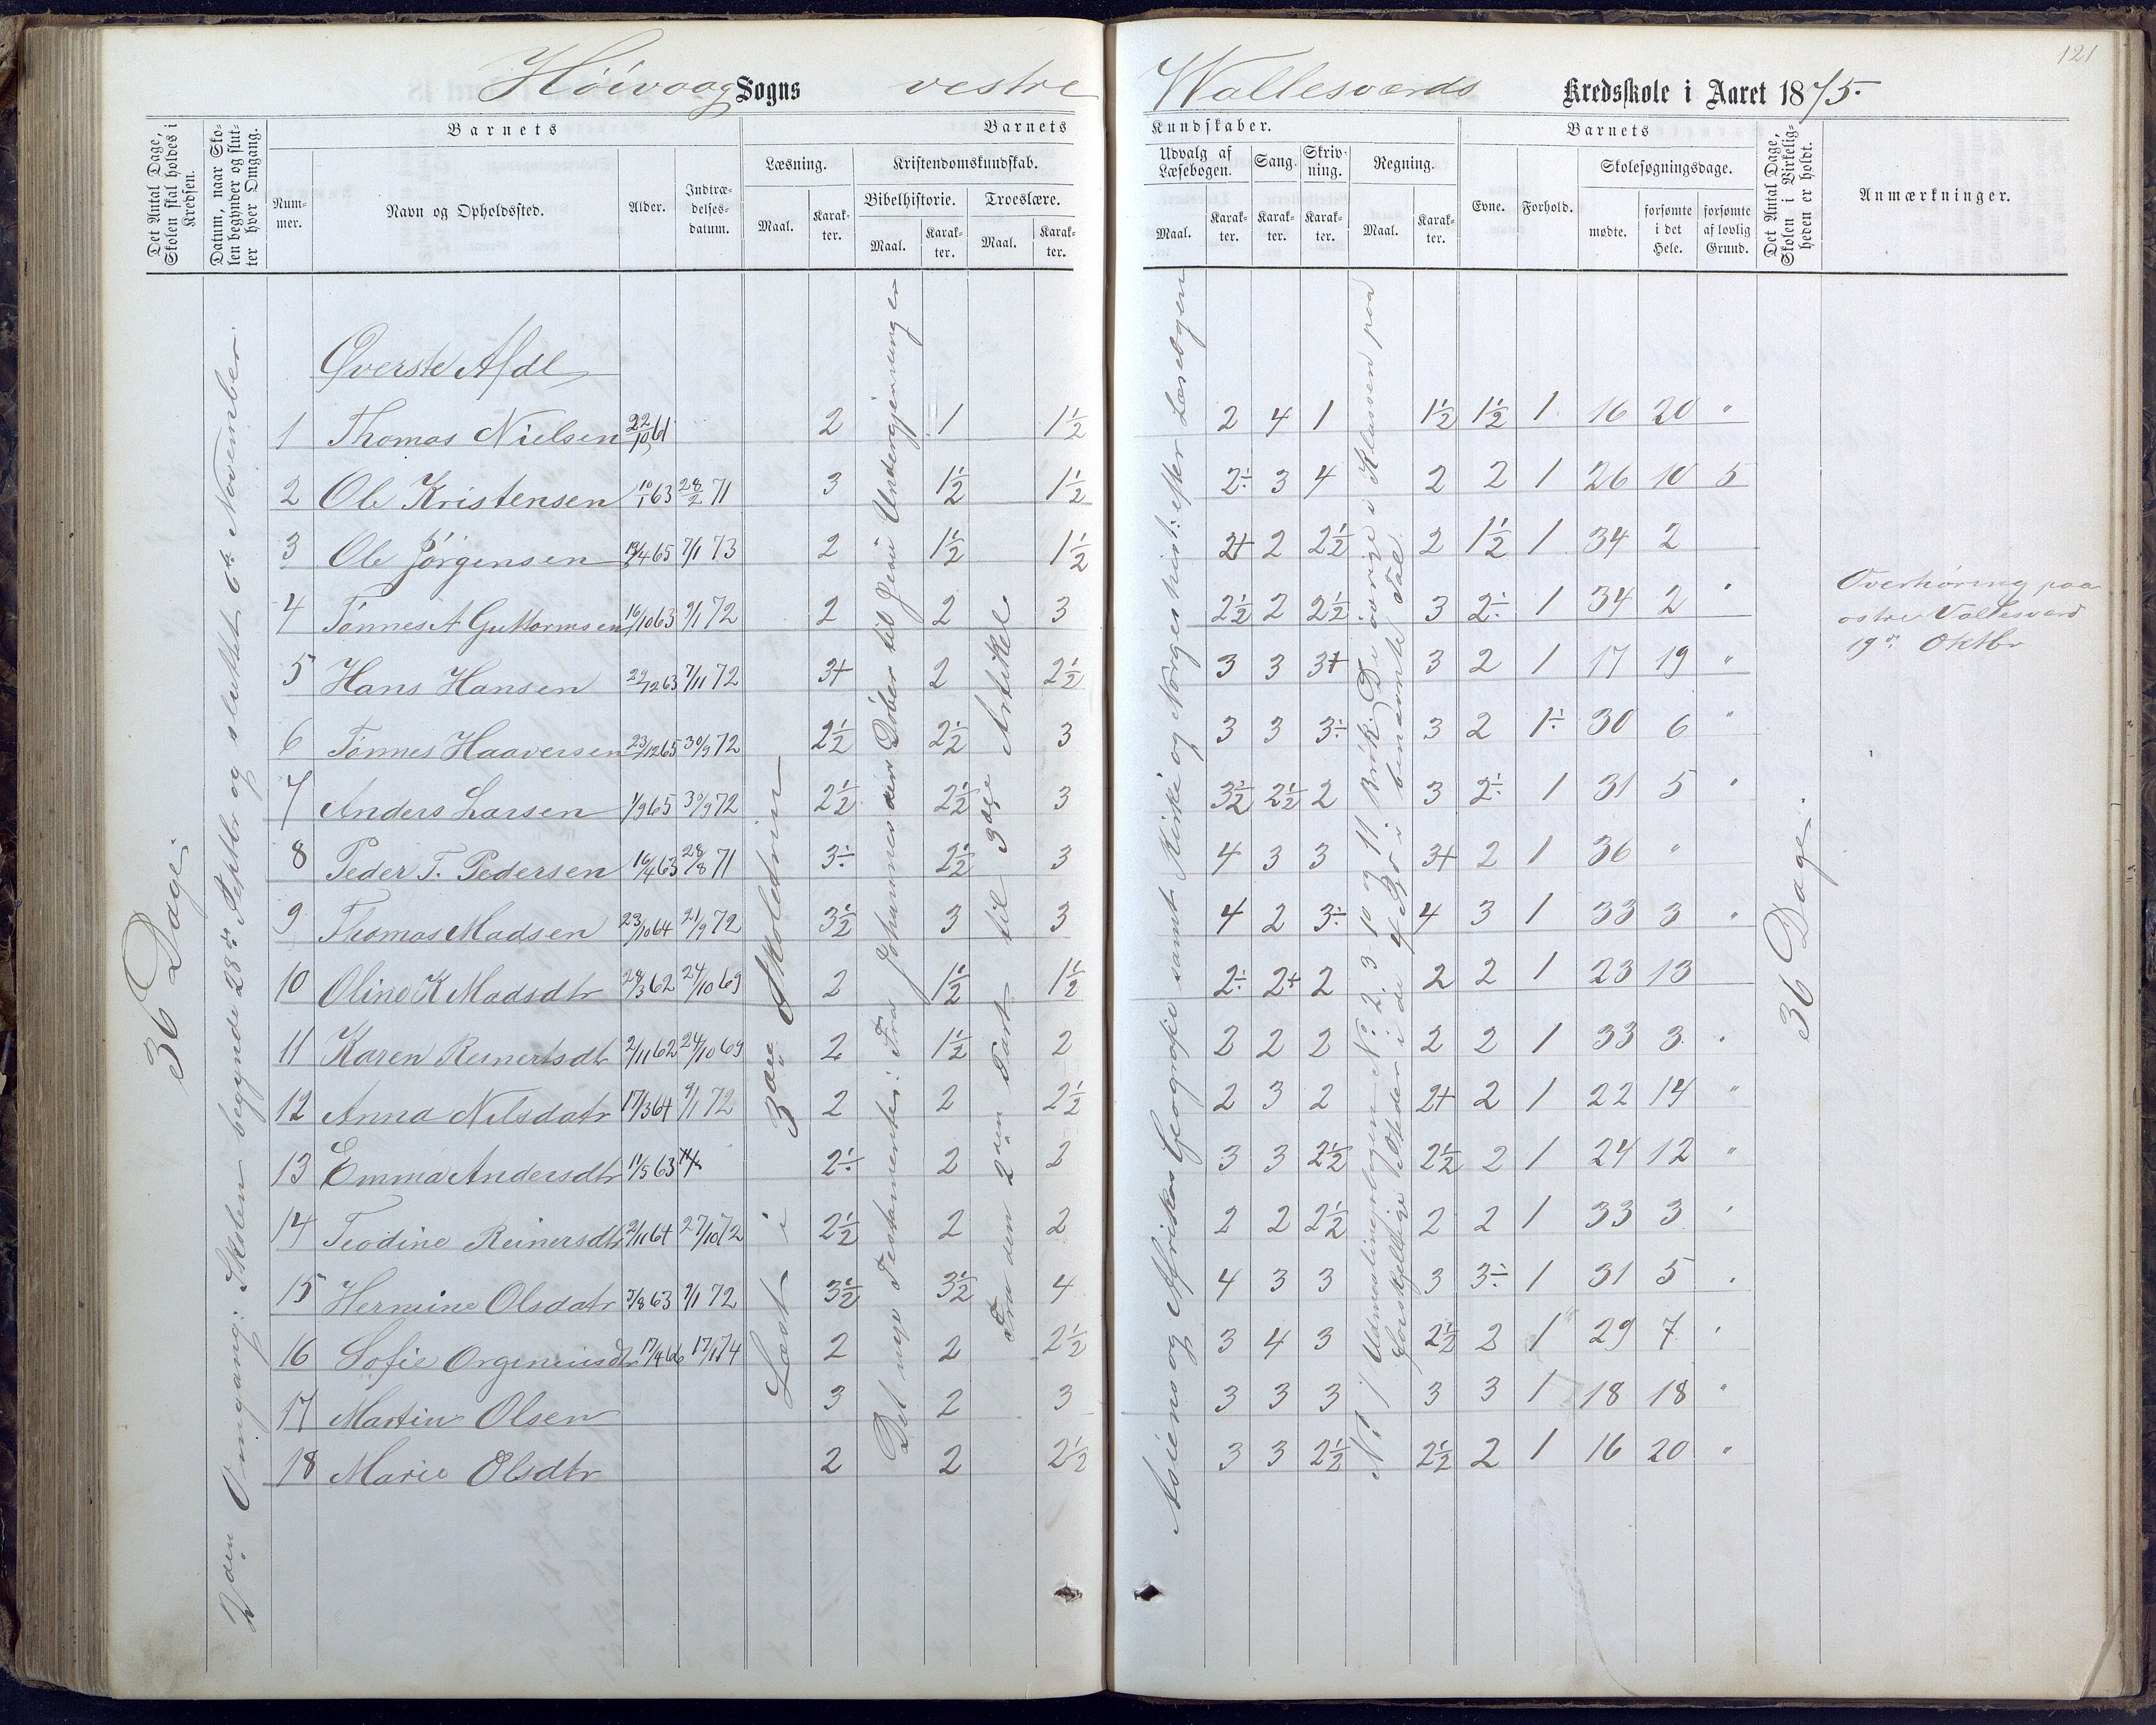 121
Höivaag Sogns vestre Wallesværds Kredsskole i Aaret 1875.
Det Antal Dage, Skolen skal holdes i Kredsen.
Datum, naar Skolen begynder og slutter hver Omgang.
Barnets
Nummer.
Navn og Opholdssted.
Alder.
Indtrædelsesdatum.
Barnets Kundskaber.
Læsning.
Maal.
Karakter.
Kristendomskundskab.
Bibelhistorie.
Maal.
Karakter.
Troeslære.
Maal.
Karakter.
Udvalg af Læsebogen.
Maal.
Karakter.
Sang.
Karakter.
Skrivning.
Karakter.
Regning.
Maal.
Karakter.
Barnets
Evne.
Forhold.
Skolesøgningsdage.
mødte.
forsømte i det Hele.
forsømte af lovlig Grund.
Det Antal Dage, Skolen i Virkeligheden er holdt.
Anmærkninger.
36 Dage.
2den Omgang: Skolen begyndte 28de Septbr og sluttet 6te November.
Øverste Afdl
1 Thomas Nielsen 22/10 61 2 1 1½ 2 4 1 1½ 1½ 1 16 20 "
2 Ole Kristensen 10/1 63 28/2 71 3 1½ 1½ 2÷ 3 4 2 2 1 26 10 5
3 Ole Jörgensen 13/4 65 7/1 73 2 1½ 1½ 2+ 2 2½ 2 1½ 1 34 2
4 Tönnes A Guttormsen 16/10 63 9/1 72 2 2 3 2½ 2 2½ 3 2÷ 1 34 2 "
5 Hans Hansen 29/12 63 7/11 72 3+ 2 2½ 3 3 3+ 3 2 1 17 19 "
6 Tönnes Haaversen 23/12 65 30/9 72 2½ 2½ 3 3 3 3÷ 3 2 1÷ 30 6 "
7 Anders Larsen 1/9 65 30/9 72 2½ 2½ 3 3½ 2½ 2 3 2÷ 1 31 5 "
8 Peder T. Pedersen 16/4 63 28/8 71 3÷ 2½ 3 4 3 3 3+ 2 1 36 "
9 Thomas Madsen 23/10 64 21/9 72 3½ 3 3 4 2 3÷ 4 3 1 33 3 "
10 Oline K Madsdtr 28/3 62 24/10 69 2 1½ 1½ 2÷ 2+ 2 2 2 1 23 13
11 Karen Reinertsdtr 2/11 62 24/10 69 2 1½ 2 2 2 2 2 2 1 33 3 "
12 Anna Nilsdatr 17/3 64 9/1 72 2 2 2½ 2 3 2 2+ 2 1 22 14 "
13 Emma Andersdtr 11/5 63 2÷ 2 2 3 3 2½ 2½ 2 1 24 12 "
14 Teodine Reinersdtr 2/11 64 27/10 72 2½ 2 2 2 2 2½ 2 2 1 33 3 "
15 Hermine Olsdatr 3/8 63 9/1 72 3½ 3½ 4 4 3 3 3 3÷ 1 31 5 "
16 Sofie 17/4 66 17/1 74 2 2 2½ 3 4 3 2½ 2 1 29 7 "
17 Martin Olsen 3 2 3 3 3 3 3 3 1 18 18 "
18 Marie Olsdtr 2 2 2½ 3 3 2½ 2½ 2 1 16 20 "
Læst i 3die Skoletrin
Det nye Testamente: Fra Johannes den Döber til Jesu Undergjerninger
Fra den 2den Part til 3die Artikel
Asiens og Afrikas Geografie samt Kirke og Norges hist: efter Læsebogen
No 1 / Udmaalingsbogen No 2, 3 10 og 11. Brök. De øvrige i Klassen paa
forskjellige Steder i de 4 Sp: i benævnte Tal
36 Dage.
Overhøring paa
østre Vallesværd
19de Oktbr